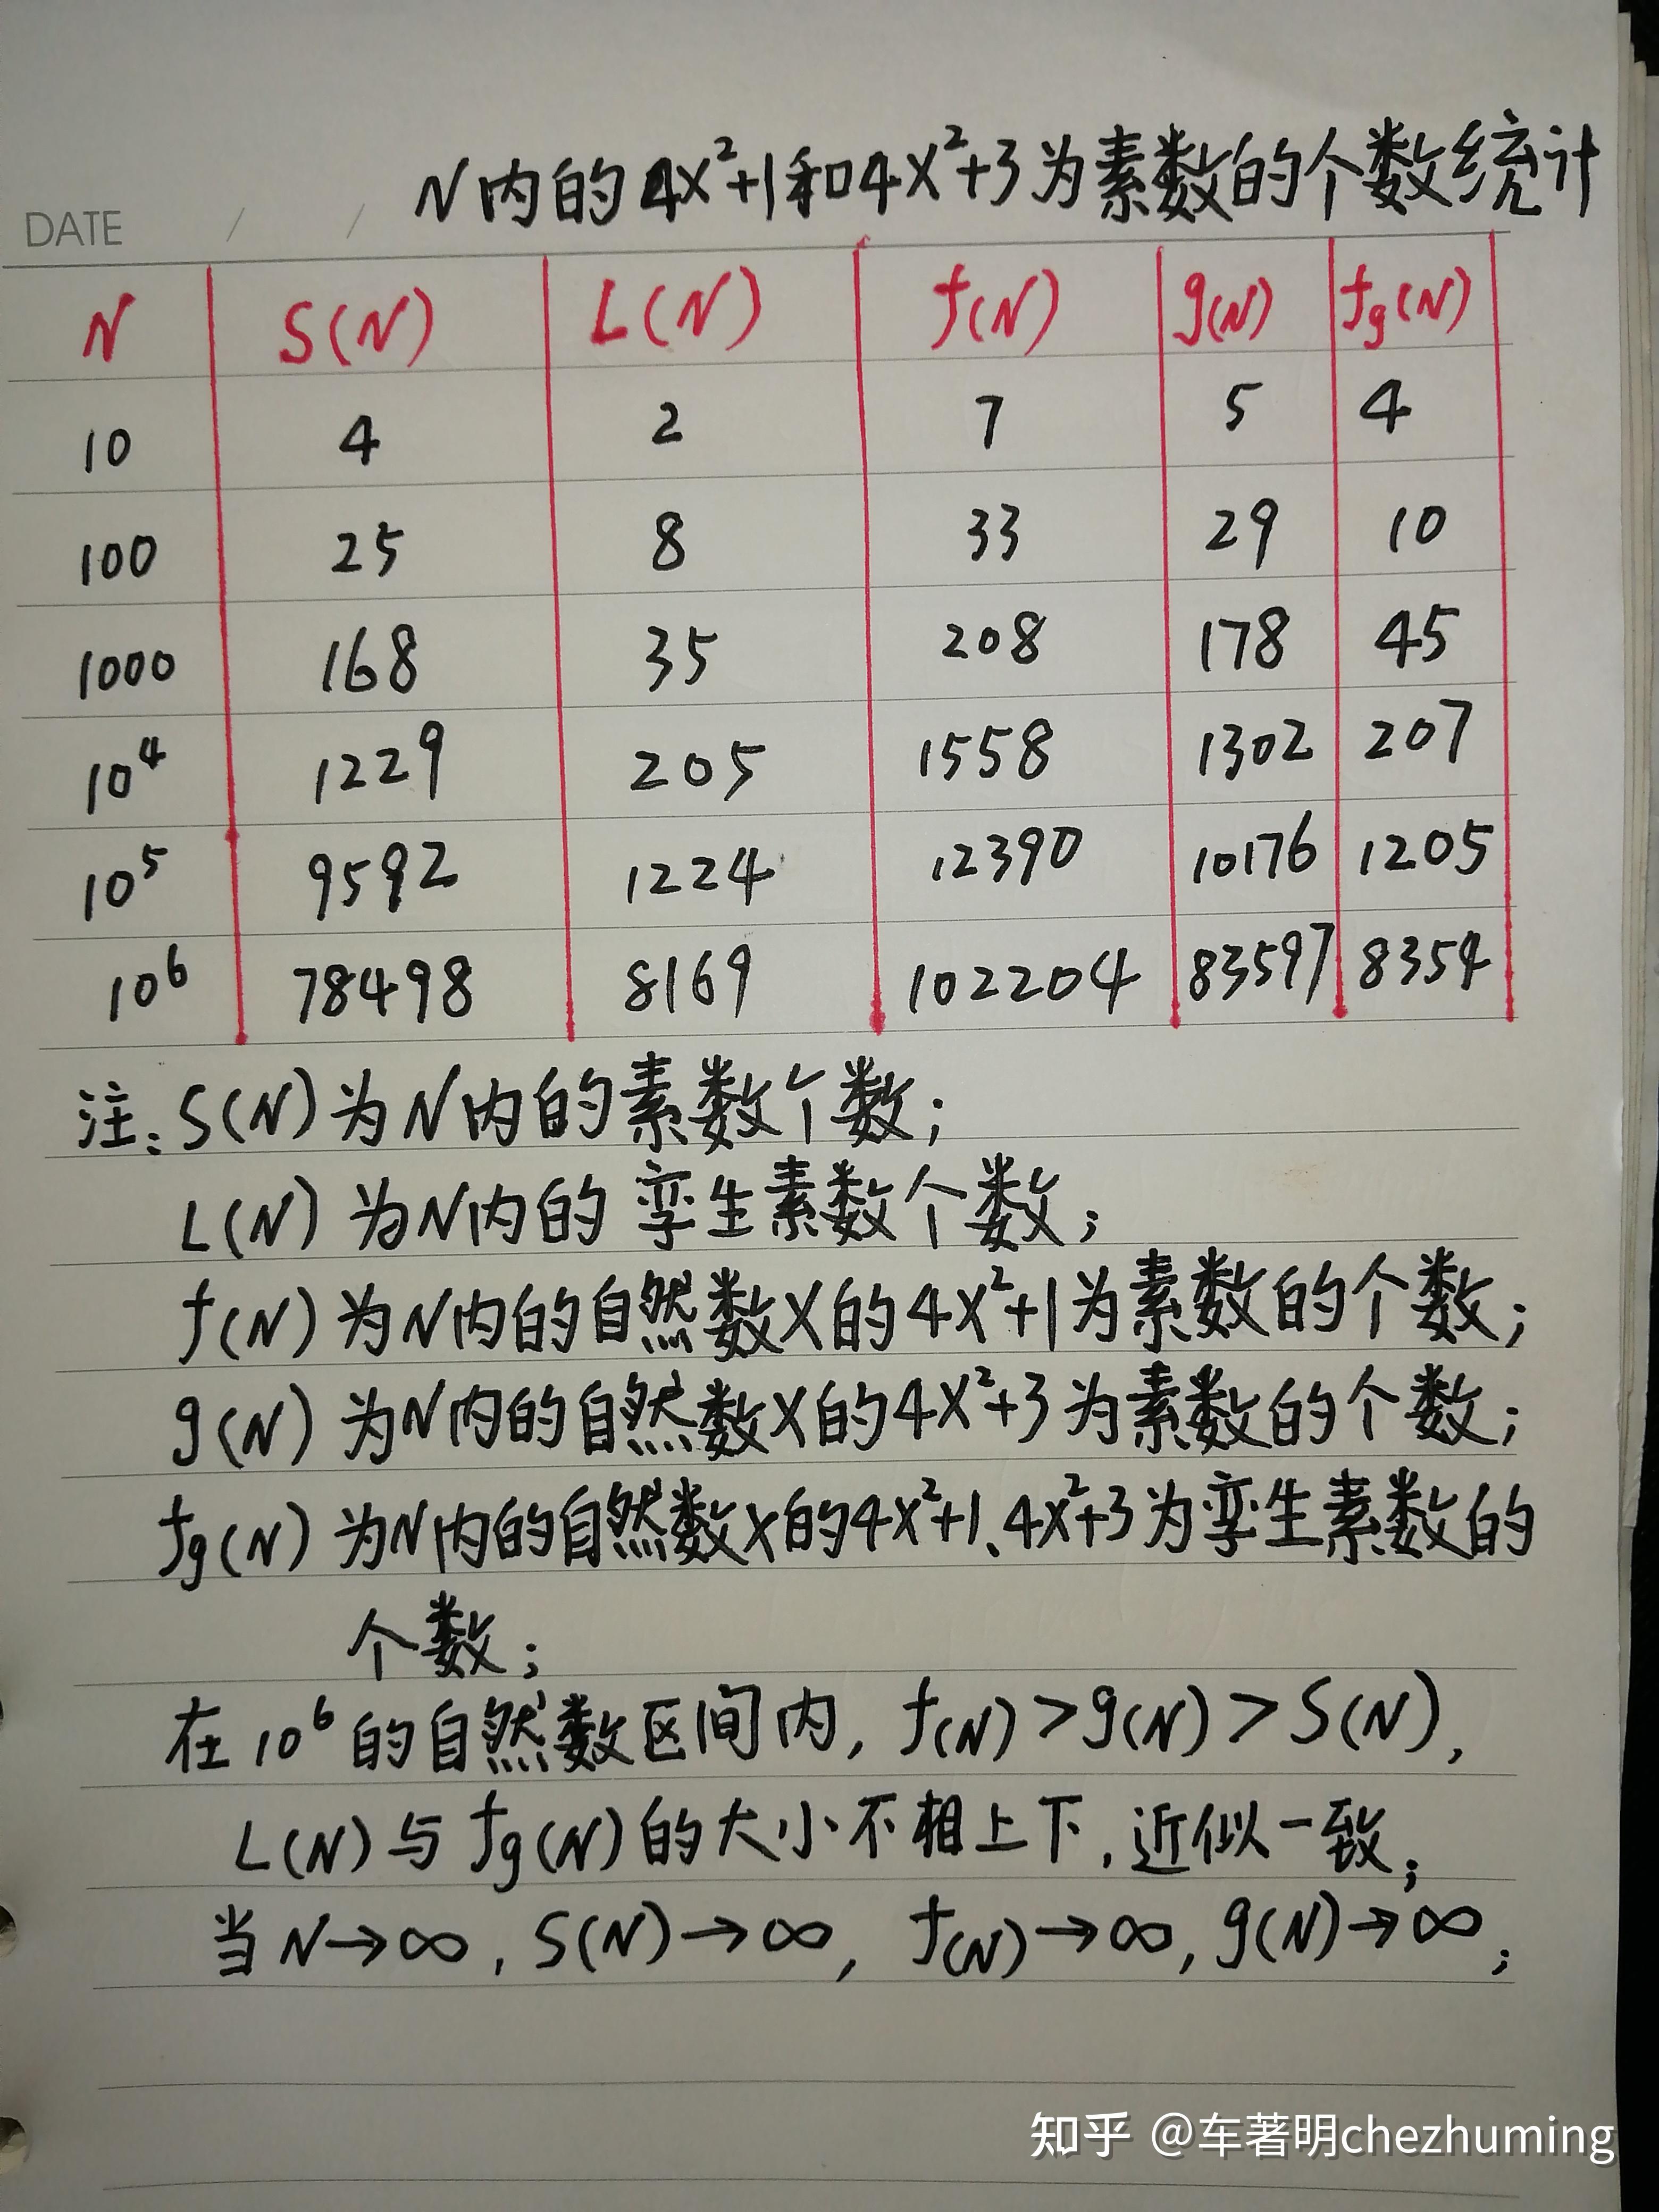 N内的4x²+1和4x²+3为素数的个数统计
DATE / /
N S(N) L(N) f(N) g(N) fg(N)
10 4 2 7 5 4
100 25 8 33 29 10
1000 168 35 208 178 45
10⁴ 1229 205 1558 1302 207
10⁵ 9592 1224 12390 10176 1205
10⁶ 78498 8169 102204 83597 8354
注:S(N)为N内的素数个数;
L(N)为N内的孪生素数个数;
f(N)为N内的自然数x的4x²+1为素数的个数;
g(N)为N内的自然数x的4x²+3为素数的个数;
fg(N)为N内的自然数x的4x²+1、4x²+3为孪生素数的
个数;
在10⁶的自然数区间内,f(N)>g(N)>S(N),
L(N)与fg(N)的大小不相上下,近似一致;
当N→∞,S(N)→∞,f(N)→∞,g(N)→∞;
知乎 @车著明chezhuming